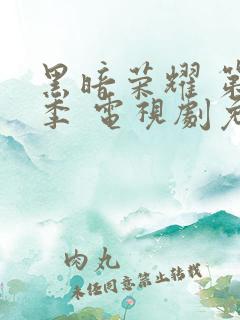 黑暗荣耀 第
季 電視劇免
肉丸
未经同意禁止转载